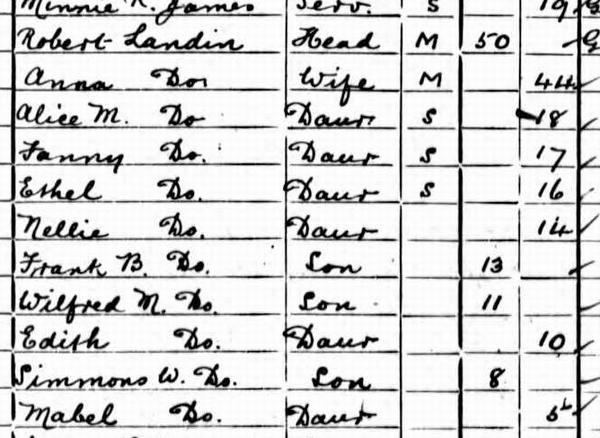 Minnie R. James Serv. S 19
Robert Landin Head M 50
Anna Do. Wife M 44
Alice M. Do Daur. S 18
Fanny Do. Daur S 17
Ethel Do. Daur S 16
Nellie Do. Daur 14
Frank B. Do. Son 13
Wilfred M. Do. Son 11
Edith Do. Daur 10
Simmons W. Do. Son 8
Mabel Do. Daur 5